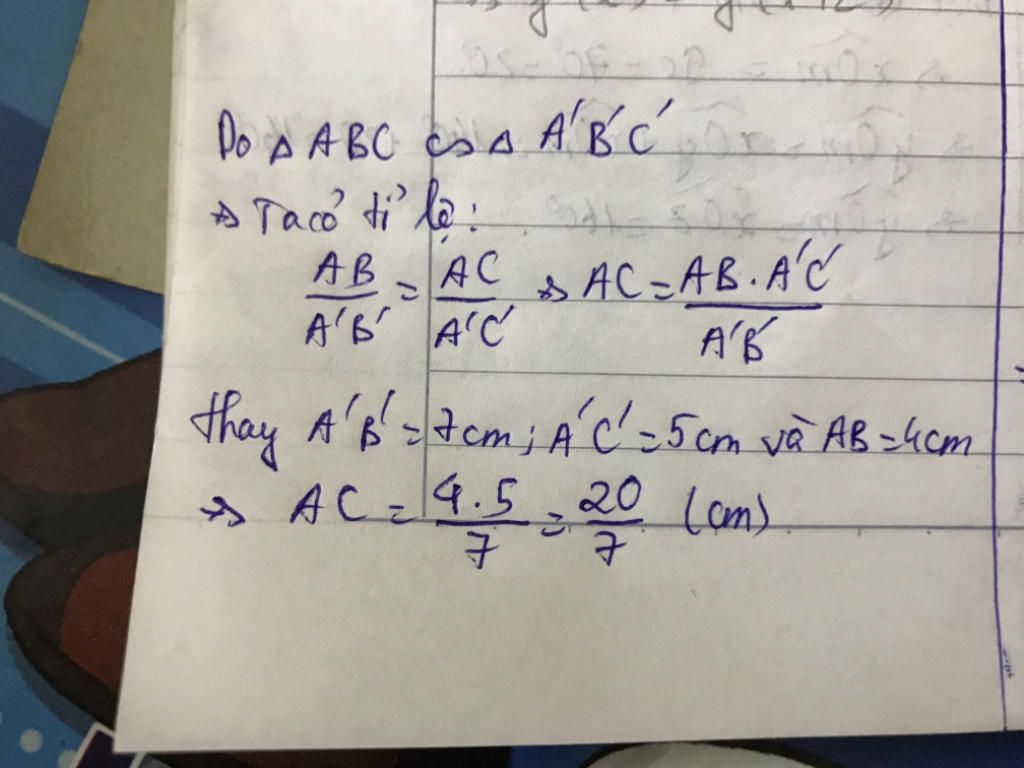 Do Δ ABC ∽ Δ A'B'C'
=> Ta có tỉ lệ:
AB/A'B' = AC/A'C' => AC = AB.A'C'/A'B'
thay A'B' = 7cm; A'C' = 5cm và AB = 4cm
=> AC = 4.5/7 = 20/7 (cm)